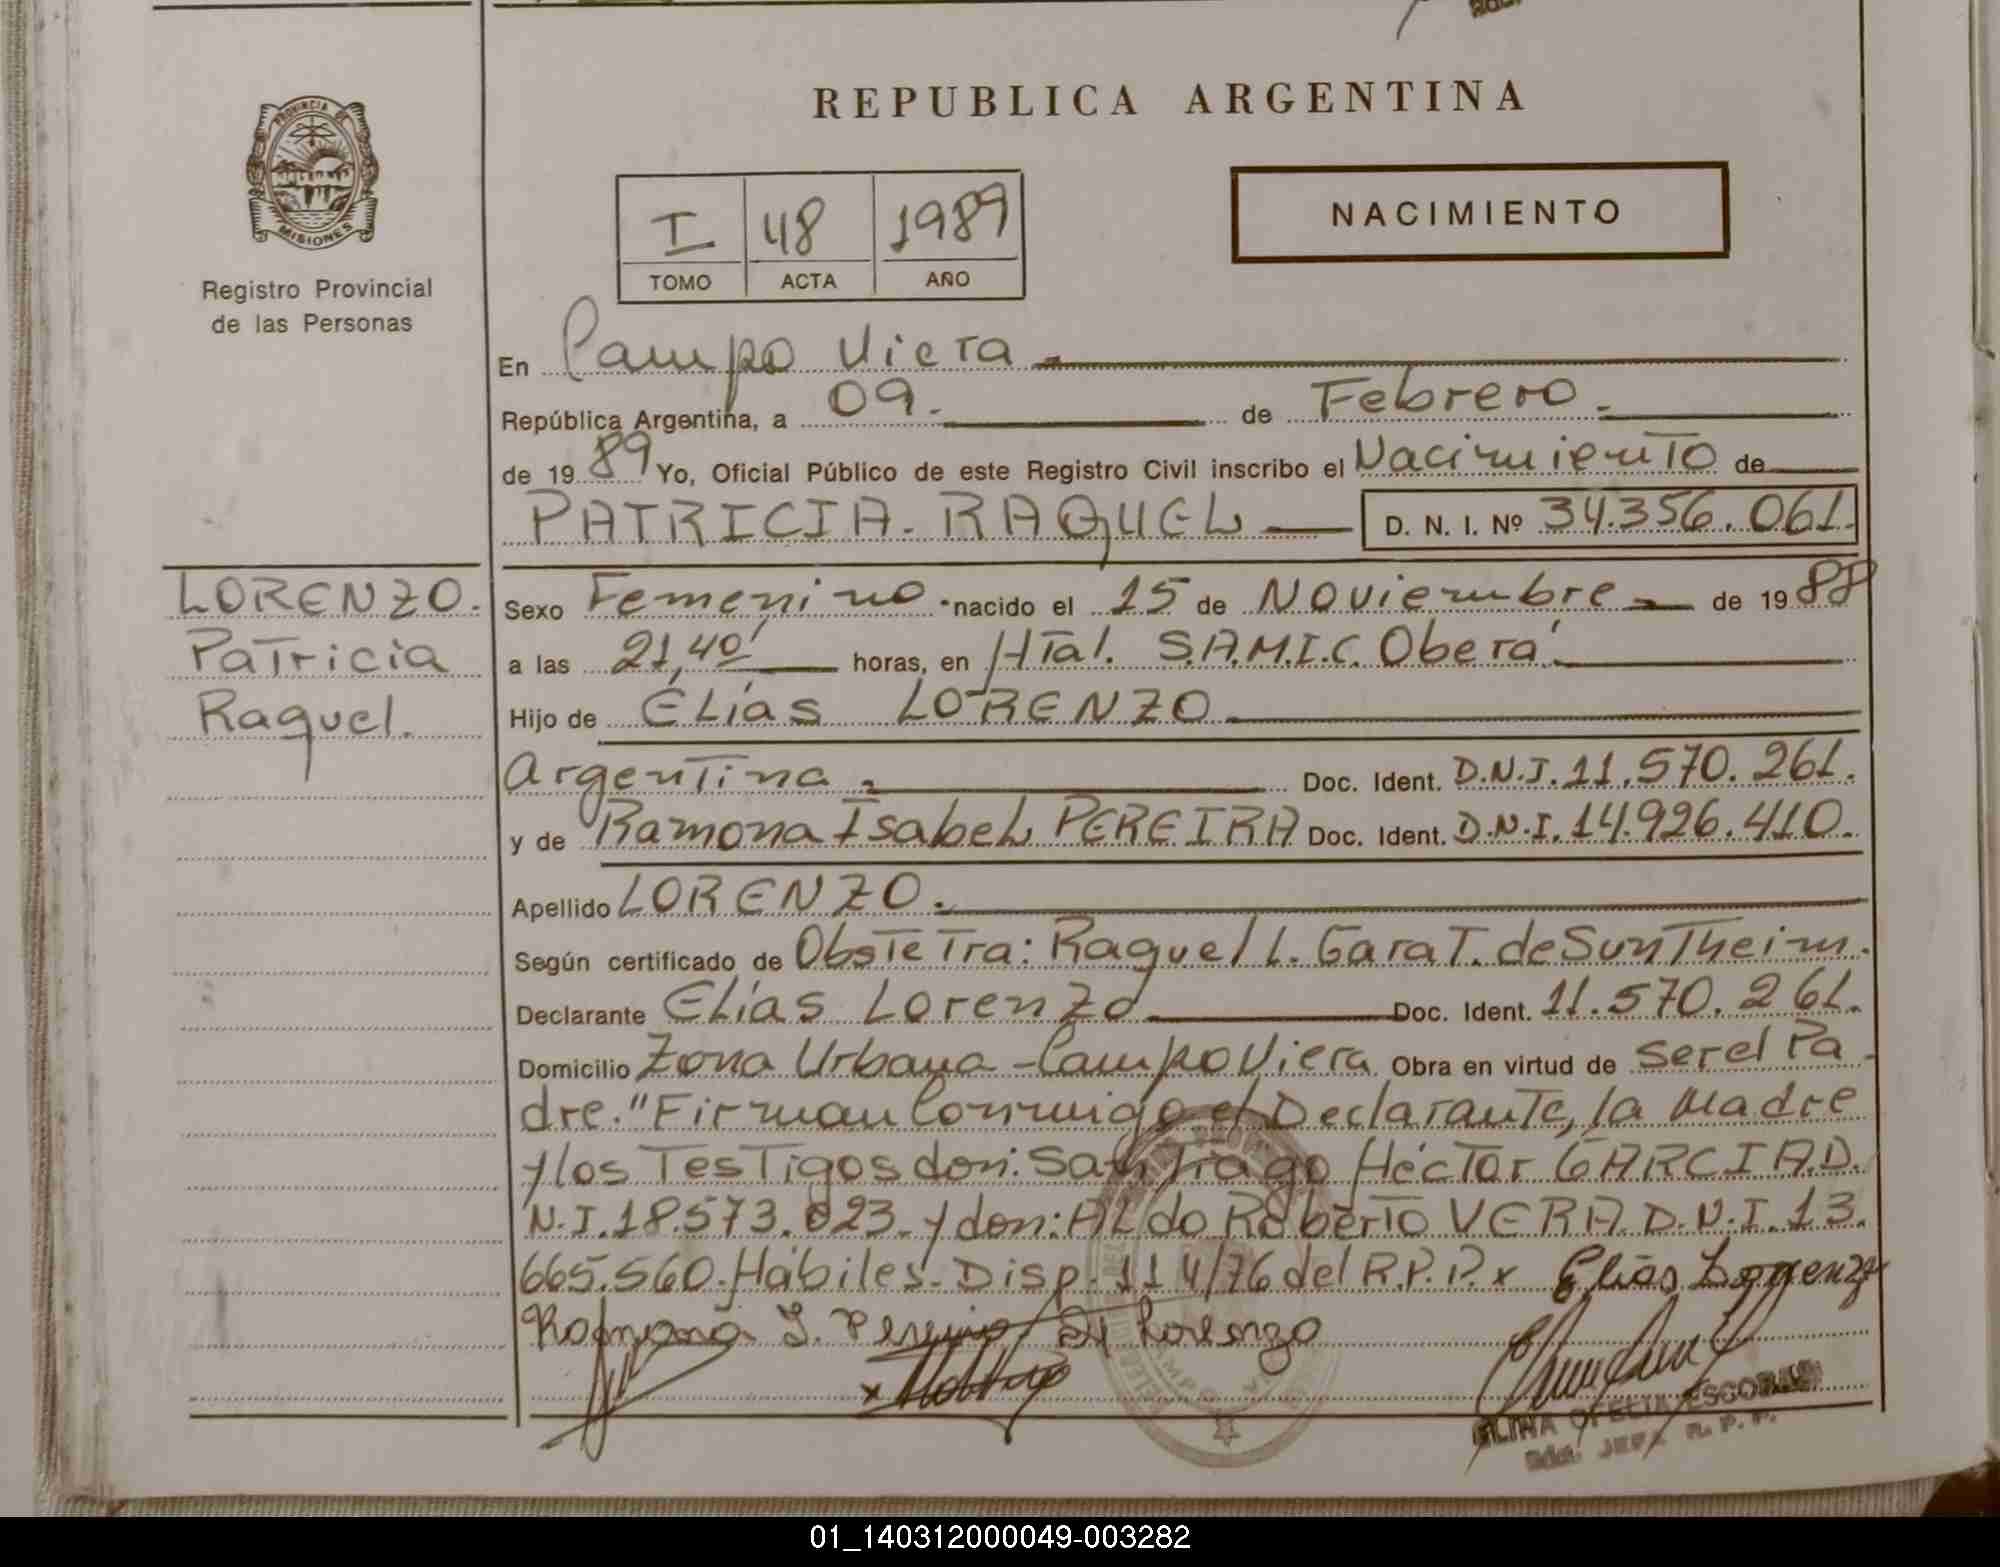 REPUBLICA ARGENTINA
PROVINCIA DE
MISIONES
Registro Provincial
de las Personas
I 48 1989
TOMO ACTA AÑO
NACIMIENTO
En Campo Viera
República Argentina, a 09. de Febrero.
de 1989 Yo, Oficial Público de este Registro Civil inscribo el Nacimiento de
PATRICIA. RAQUEL D. N. I. Nº 34.356.061.
LORENZO.
Patricia
Raquel.
Sexo Femenino nacido el 15 de Noviembre de 1988
a las 21,40' horas, en Htal. S.A.M.I.C. Oberá
Hijo de Elías LORENZO
Argentina. Doc. Ident. D.N.I. 11.570.261.
y de Ramona Isabel PEREIRA Doc. Ident. D.N.I. 14.926.410.
Apellido LORENZO.
Según certificado de Obstetra: Raquel L. Garat. de Suntheim.
Declarante Elías Lorenzo Doc. Ident. 11.570.261.
Domicilio Zona Urbana - Campo Viera Obra en virtud de ser el Pa
dre. "Firman Conmigo el Declarante, la Madre
y los Testigos don: Santiago Héctor GARCIA D.
N.I. 18.573.023. y don: Aldo Roberto VERA D.N.I. 13.
665.560. Hábiles. Disp. 114/76 del R.P.P. x Elias Lorenzo
Romona I. Pereira de Lorenzo
OFELIA ESCOBAR
JEFA R. P. P.
01_140312000049-003282